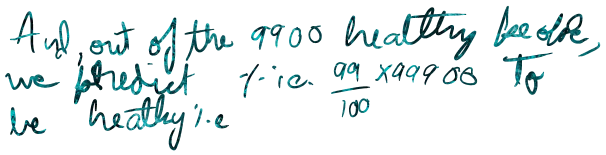 And, out of the 9900 healthy people,
we predict i.e. 99/100 × 99900 To
be heathy i.e